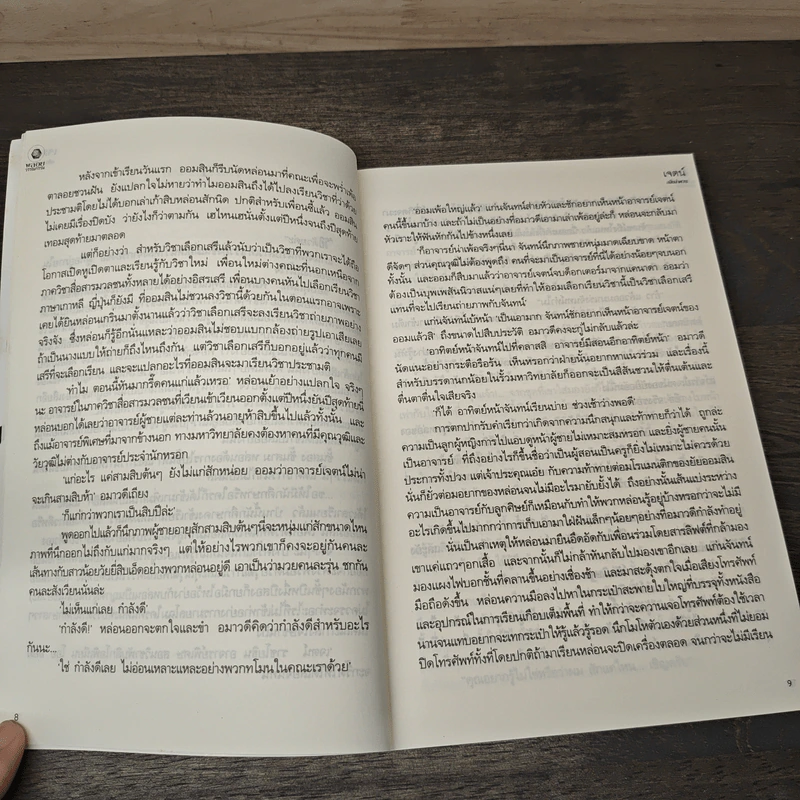 พลอย
วรรณกรรม
หลังจากเข้าเรียนวันแรก ออมสินก็รีบนัดหล่อนมาที่คณะเพื่อจะพร่ำเพ้อ
ตาลอยชวนฝัน ยังแปลกใจไม่หายว่าทำไมออมสินถึงได้ไปลงเรียนวิชาที่ว่าด้วย
ประชามติโดยไม่ได้บอกเล่าเก้าสิบหล่อนสักนิด ปกติสำหรับเพื่อนซี้แล้ว ออมสิน
ไม่เคยมีเรื่องปิดบัง ว่ายังไงก็ว่าตามกัน เฮไหนเฮนั่นตั้งแต่ปีหนึ่งจนถึงปีสุดท้าย
เทอมสุดท้ายมาตลอด
แต่ก็อย่างว่า สำหรับวิชาเลือกเสรีแล้วนับว่าเป็นวิชาที่พวกเราจะได้ถือ
โอกาสเปิดหูเปิดตาและเรียนรู้กับวิชาใหม่ เพื่อนใหม่ต่างคณะที่นอกเหนือจาก
ภาควิชาสื่อสารมวลชนทั้งหลายได้อย่างอิสรเสรี เพื่อนบางคนหันไปเลือกเรียนวิชา
ภาษาเกาหลี ญี่ปุ่นก็ยังมี ที่ออมสินไม่ชวนลงวิชานี้ด้วยกันในตอนแรกอาจเพราะ
เคยได้ยินหล่อนเกริ่นมาตั้งนานแล้วว่าวิชาเลือกเสรีจะลงเรียนวิชาถ่ายภาพอย่าง
จริงจัง ซึ่งหล่อนก็รู้อีกนั่นแหละว่าออมสินไม่ชอบแบกกล้องถ่ายรูปเอาเสียเลย
ถ้าเป็นนางแบบให้ถ่ายก็ถึงไหนถึงกัน แต่วิชาเลือกเสรีก็บอกอยู่แล้วว่าทุกคนมี
เสรีที่จะเลือกเรียน และจะแปลกอะไรที่ออมสินจะมาเรียนวิชาประชามติ
'ทำไม ตอนนี้หันมากรี๊ดคนแก่แล้วเหรอ' หล่อนเย้าอย่างแปลกใจ จริงๆ
นะ อาจารย์ในภาควิชาสื่อสารมวลชนที่เวียนเข้าเวียนออกตั้งแต่ปีหนึ่งยันปีสุดท้ายนี้
หล่อนบอกได้เลยว่าอาจารย์ผู้ชายแต่ละท่านล้วนอายุห้าสิบขึ้นไปแล้วทั้งนั้น และ
ถึงแม้อาจารย์พิเศษที่มาจากข้างนอก ทางมหาวิทยาลัยคงต้องหาคนที่มีคุณวุฒิและ
วัยวุฒิไม่ต่างกับอาจารย์ประจำนักหรอก
'แก่อะไร แค่สามสิบต้นๆ ยังไม่แก่สักหน่อย ออมว่าอาจารย์เจตน์ไม่น่า
จะเกินสามสิบห้า' อมาวดีเถียง
'ก็แก่กว่าพวกเราเป็นสิบปีล่ะ'
พูดออกไปแล้วก็นึกภาพผู้ชายอายุสักสามสิบต้นๆนี่จะหนุ่มแก่สักขนาดไหน
ภาพที่นึกออกไม่ถึงกับแก่มากจริงๆ แต่ให้อย่างไรพวกเขาก็คงจะอยู่กันคนละ
เส้นทางกับสาวน้อยวัยยี่สิบเอ็ดอย่างพวกหล่อนอยู่ดี เอาเป็นว่ามวยคนละรุ่น ชกกัน
คนละสังเวียนนั่นละ
'ไม่เห็นแก่เลย กำลังดี'
'กำลังดี!' หล่อนออกจะตกใจและขำ อมาวดีคิดว่ากำลังดีสำหรับอะไร
กันนะ...
'ใช่ กำลังดีเลย ไม่อ่อนเหลาะแหละอย่างพวกทโมนในคณะเราด้วย'
8
เจตน์
'ออมเพ้อใหญ่แล้ว' แก่นจันทน์ส่ายหัวและชักอยากเห็นหน้าอาจารย์เจตน์
คนนี้ขึ้นมาบ้าง และถ้าไม่เป็นอย่างที่อมาวดีเอามาเล่าเพ้ออยู่ล่ะก็ หล่อนจะกลับมา
หัวเราะให้ฟันหักกันไปข้างหนึ่งเลย
'ก็อาจารย์น่าเพ้อจริงๆนี่นา จันทน์นึกภาพชายหนุ่มมาดเฉียบขาด หน้าตา
ดีจัดๆ ส่วนคุณวุฒิไม่ต้องพูดถึง คนที่จะมาเป็นอาจารย์ที่นี่ได้อย่างน้อยๆจบนอก
ทั้งนั้น และออมก็สืบมาแล้วว่าอาจารย์เจตน์จบด็อกเตอร์มาจากแคนาดา ออมว่า
ต้องเป็นบุพเพสันนิวาสแน่ๆเลยที่ทำให้ออมเลือกเรียนวิชานี้เป็นวิชาเลือกเสรี
แทนที่จะไปเรียนถ่ายภาพกับจันทน์'
แก่นจันทน์เบ้หน้า 'เป็นเอามาก จันทน์ชักอยากเห็นหน้าอาจารย์เจตน์ของ
ออมแล้วสิ' ถึงขนาดไปสืบประวัติ อมาวดีคงจะกู่ไม่กลับแล้วล่ะ
'อาทิตย์หน้าจันทน์ไปที่คลาสสิ อาจารย์มีสอนอีกอาทิตย์หน้า' อมาวดี
นัดแนะอย่างกระตือรือร้น เห็นหรอกว่าฝ่ายนั้นอยากหาแนวร่วม และเรื่องนี้
สำหรับบรรดานกน้อยในรั้วมหาวิทยาลัยก็ออกจะเป็นสีสันชวนให้ตื่นเต้นและ
ตื่นตาตื่นใจเสียจริง
'ก็ได้ อาทิตย์หน้าจันทน์เรียนบ่าย ช่วงเช้าว่างพอดี'
การตกปากรับคำเรียกว่าเกิดจากความนึกสนุกและท้าทายก็ว่าได้ ถูกล่ะ
ความเป็นลูกผู้หญิงการไปแอบดูหน้าผู้ชายไม่เหมาะสมหรอก และยิ่งผู้ชายคนนั้น
เป็นอาจารย์ ที่ถึงอย่างไรก็ขึ้นชื่อว่าเป็นผู้สอนเป็นครูก็ยิ่งไม่เหมาะไม่ควรด้วย
ประการทั้งปวง แต่เจ้าประคุณเอ๋ย กับความท้าทายต่อมโรแมนติกของยัยออมสิน
นั่นก็ยั่วต่อมอยากของหล่อนจนไม่มีอะไรมายับยั้งได้ ถึงอย่างนั้นเส้นแบ่งระหว่าง
ความเป็นอาจารย์กับลูกศิษย์ก็เหมือนกับทำให้พวกหล่อนรู้อยู่บ้างหรอกว่าจะไม่มี
อะไรเกิดขึ้นไปมากกว่าการเก็บเอามาใฝ่ฝันเล็กๆน้อยๆอย่างที่อมาวดีกำลังทำอยู่
นั่นเป็นสาเหตุให้หล่อนมายืนอึดอัดกับเพื่อนร่วมโดยสารลิฟต์ที่กล้ามอง
เขาแค่แถวๆอกเสื้อ และจากนั้นก็ไม่กล้าหันกลับไปมองเขาอีกเลย แก่นจันทน์
มองแผงไฟบอกชั้นที่คลานขึ้นอย่างเชื่องช้า และมาสะดุ้งตกใจเมื่อเสียงโทรศัพท์
มือถือดังขึ้น หล่อนควานมือลงไปหาในกระเป๋าสะพายใบใหญ่ที่บรรจุทั้งหนังสือ
และอุปกรณ์ในการเรียนเกือบเต็มพื้นที่ ทำให้กว่าจะควานเจอโทรศัพท์ต้องใช้เวลา
นานจนแทบอยากจะเทกระเป๋าให้รู้แล้วรู้รอด นึกโมโหตัวเองด้วยส่วนหนึ่งที่ไม่ยอม
ปิดโทรศัพท์ทั้งที่โดยปกติถ้ามาเรียนหล่อนจะปิดเครื่องตลอด จนกว่าจะไม่มีเรียน
9